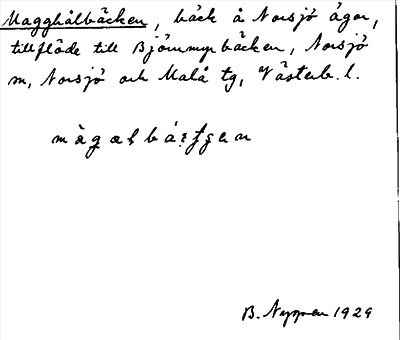 Magghålbäcken, bäck å Norsjö ägor,
tillflöde till Björnmyrbäcken, Norsjö
m, Norsjö och Malå tg, Västerb. l.
B. Nygren 1929